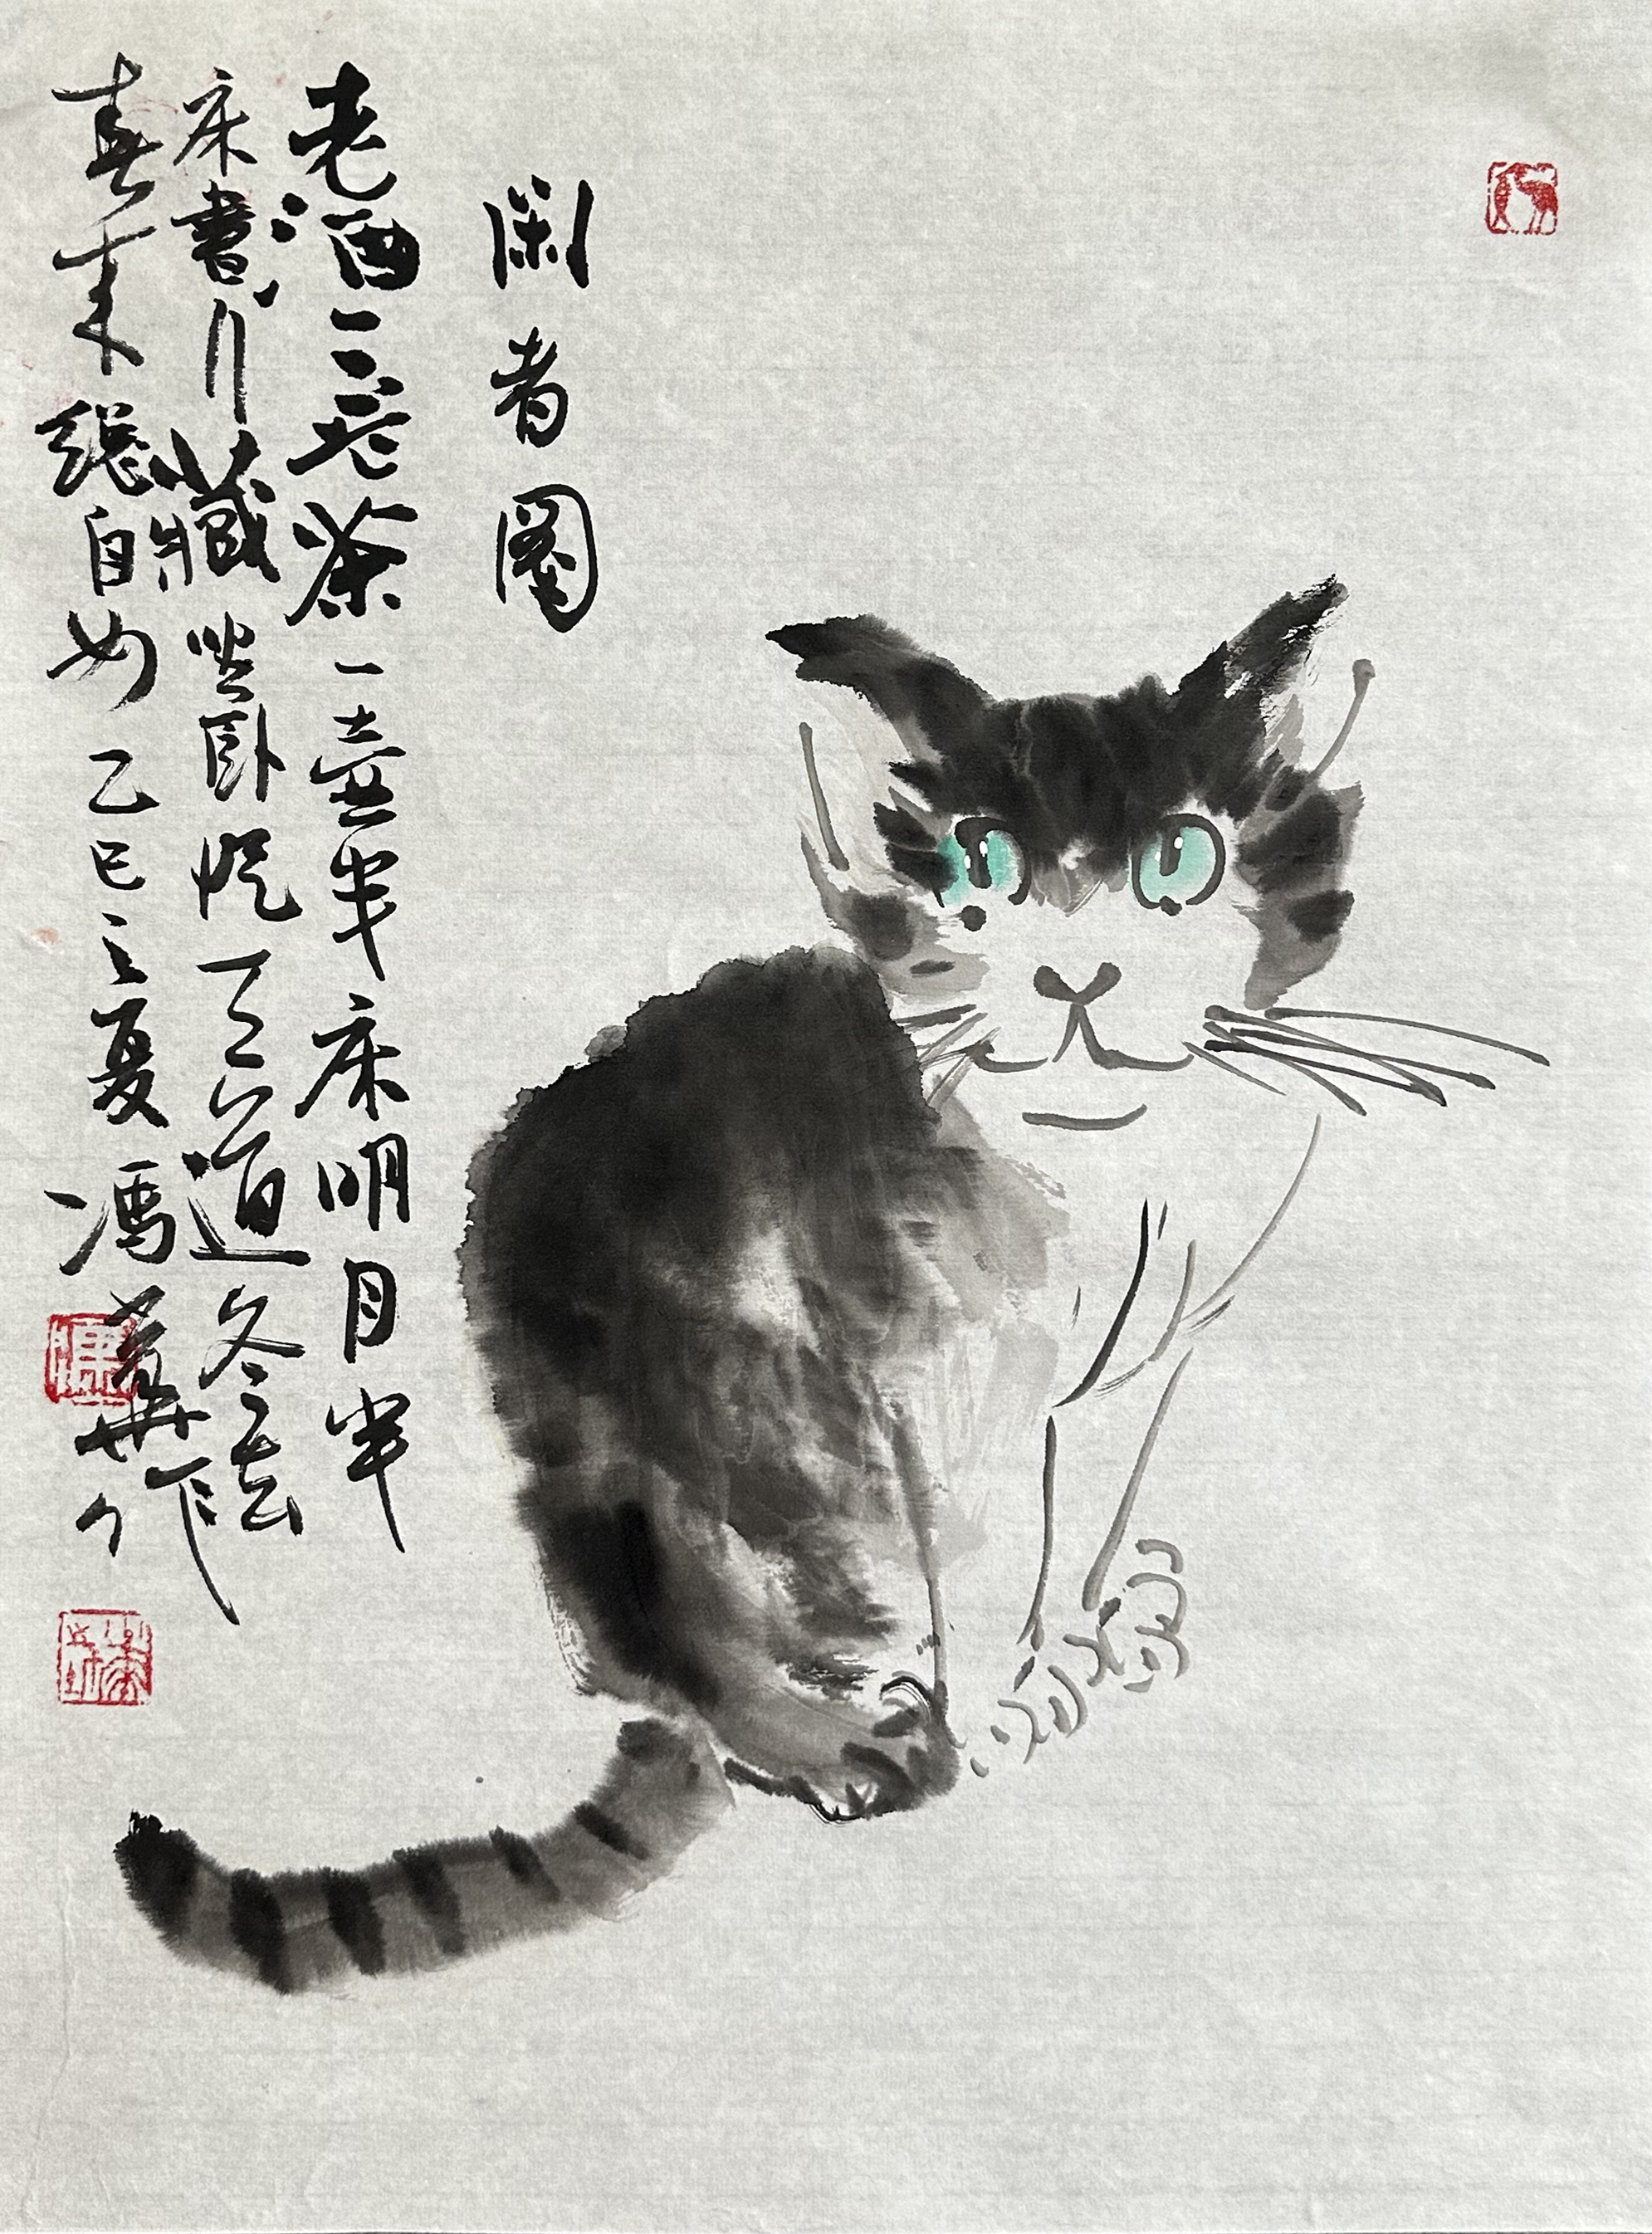 閑者圖
老酒一茶一壺半床明月半
床書行藏坐卧悦天道冬去
春来總自如乙巳之夏馮華作